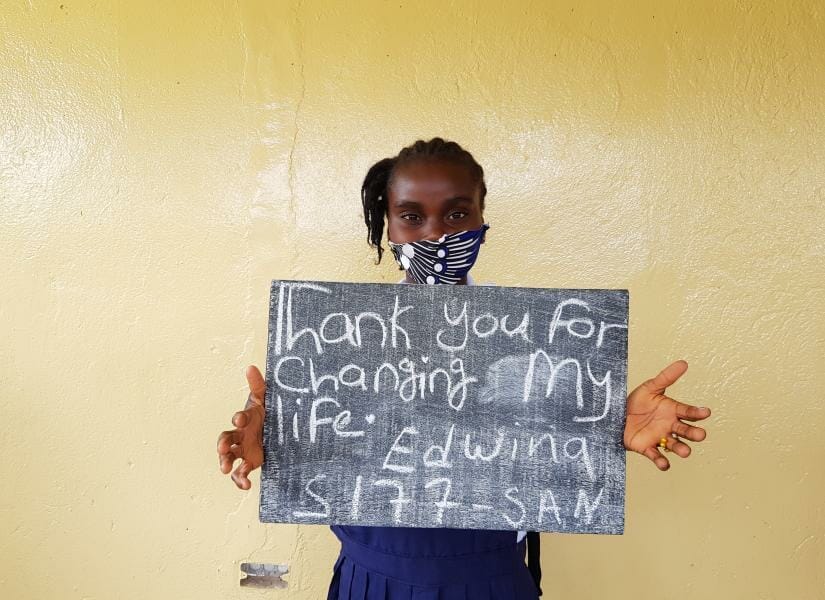 Thank you For
Changing My
life.
Edwina
S177-SAN